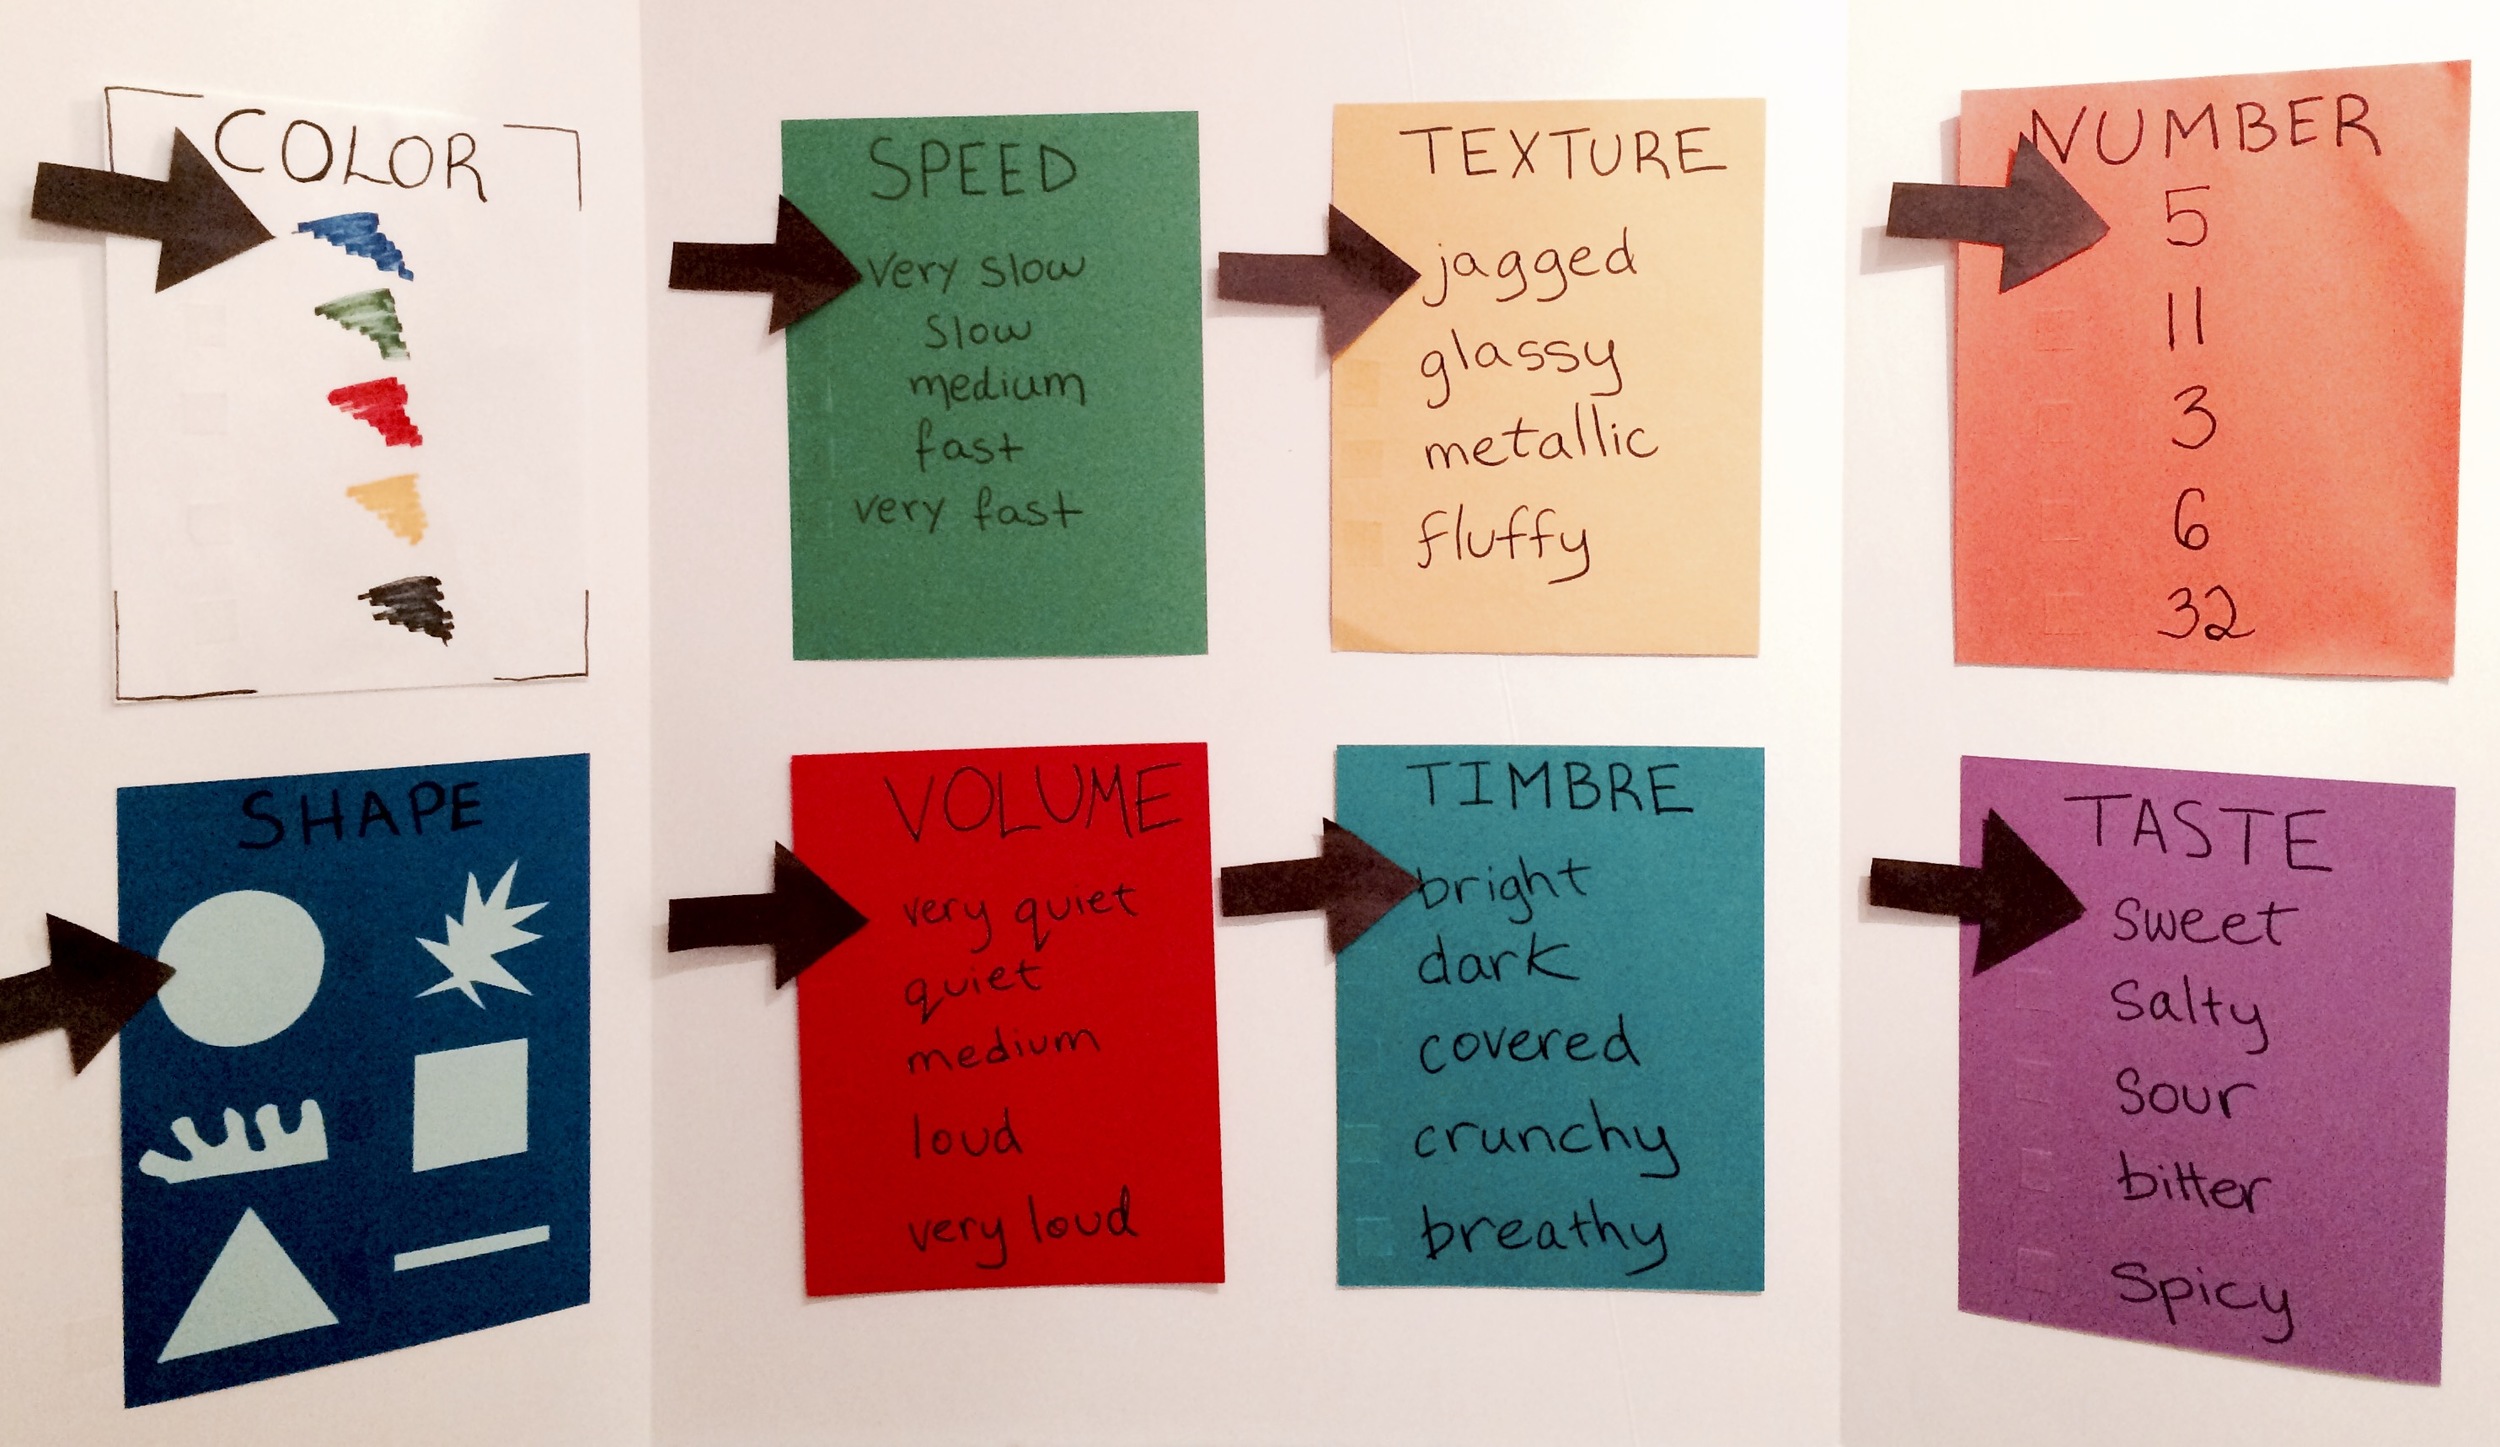 COLOR
SPEED
very slow
slow
medium
fast
very fast
TEXTURE
jagged
glassy
metallic
fluffy
NUMBER
5
11
3
6
32
SHAPE
VOLUME
very quiet
quiet
medium
loud
very loud
TIMBRE
bright
dark
covered
crunchy
breathy
TASTE
Sweet
Salty
Sour
bitter
Spicy